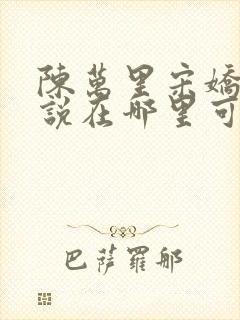 陳萬里宋嬌
說在那里可
巴薩羅那